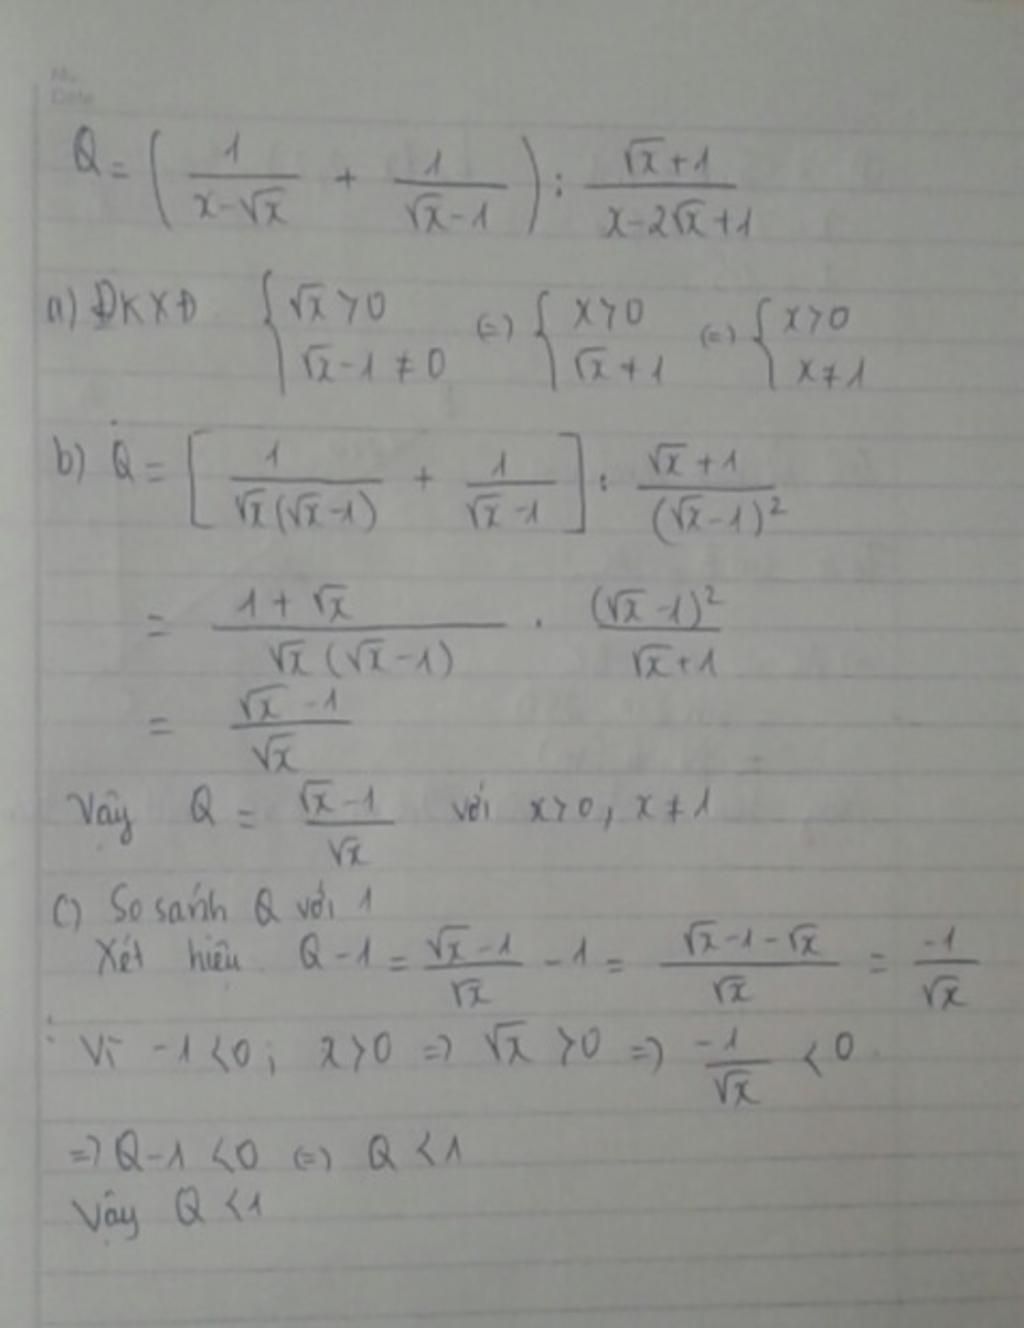 No.
Date
Q = ( 1/(x-√x) + 1/(√x-1) ) : (√x+1)/(x-2√x+1)
a) ĐKXĐ { √x > 0 ; √x-1 ≠ 0 (=) { x > 0 ; √x ≠ 1 (=) { x > 0 ; x ≠ 1
b) Q = [ 1/(√x(√x-1)) + 1/(√x-1) ] : (√x+1)/(√x-1)²
= (1+√x)/(√x(√x-1)) . (√x-1)²/(√x+1)
= (√x-1)/√x
Vậy Q = (√x-1)/√x với x>0, x≠1
c) So sánh Q với 1
Xét hiệu Q-1 = (√x-1)/√x - 1 = (√x-1-√x)/√x = -1/√x
Vì -1<0; x>0 => √x >0 => -1/√x < 0
=> Q-1 <0 (=) Q <1
Vậy Q <1